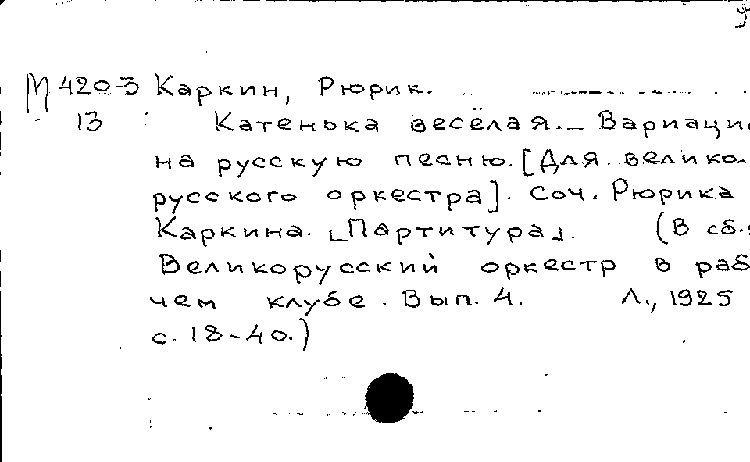 М 420-3 Каркин, Рюрик.
13 Катенька весёлая. – Вариаци
на русскую песню. [Для велико-
русского оркестра]. Соч. Рюрика
Каркина. [Партитура]. (В сб.:
Великорусский оркестр в раб
чем клубе. Вып. 4. Л., 1925
с. 18-40.)